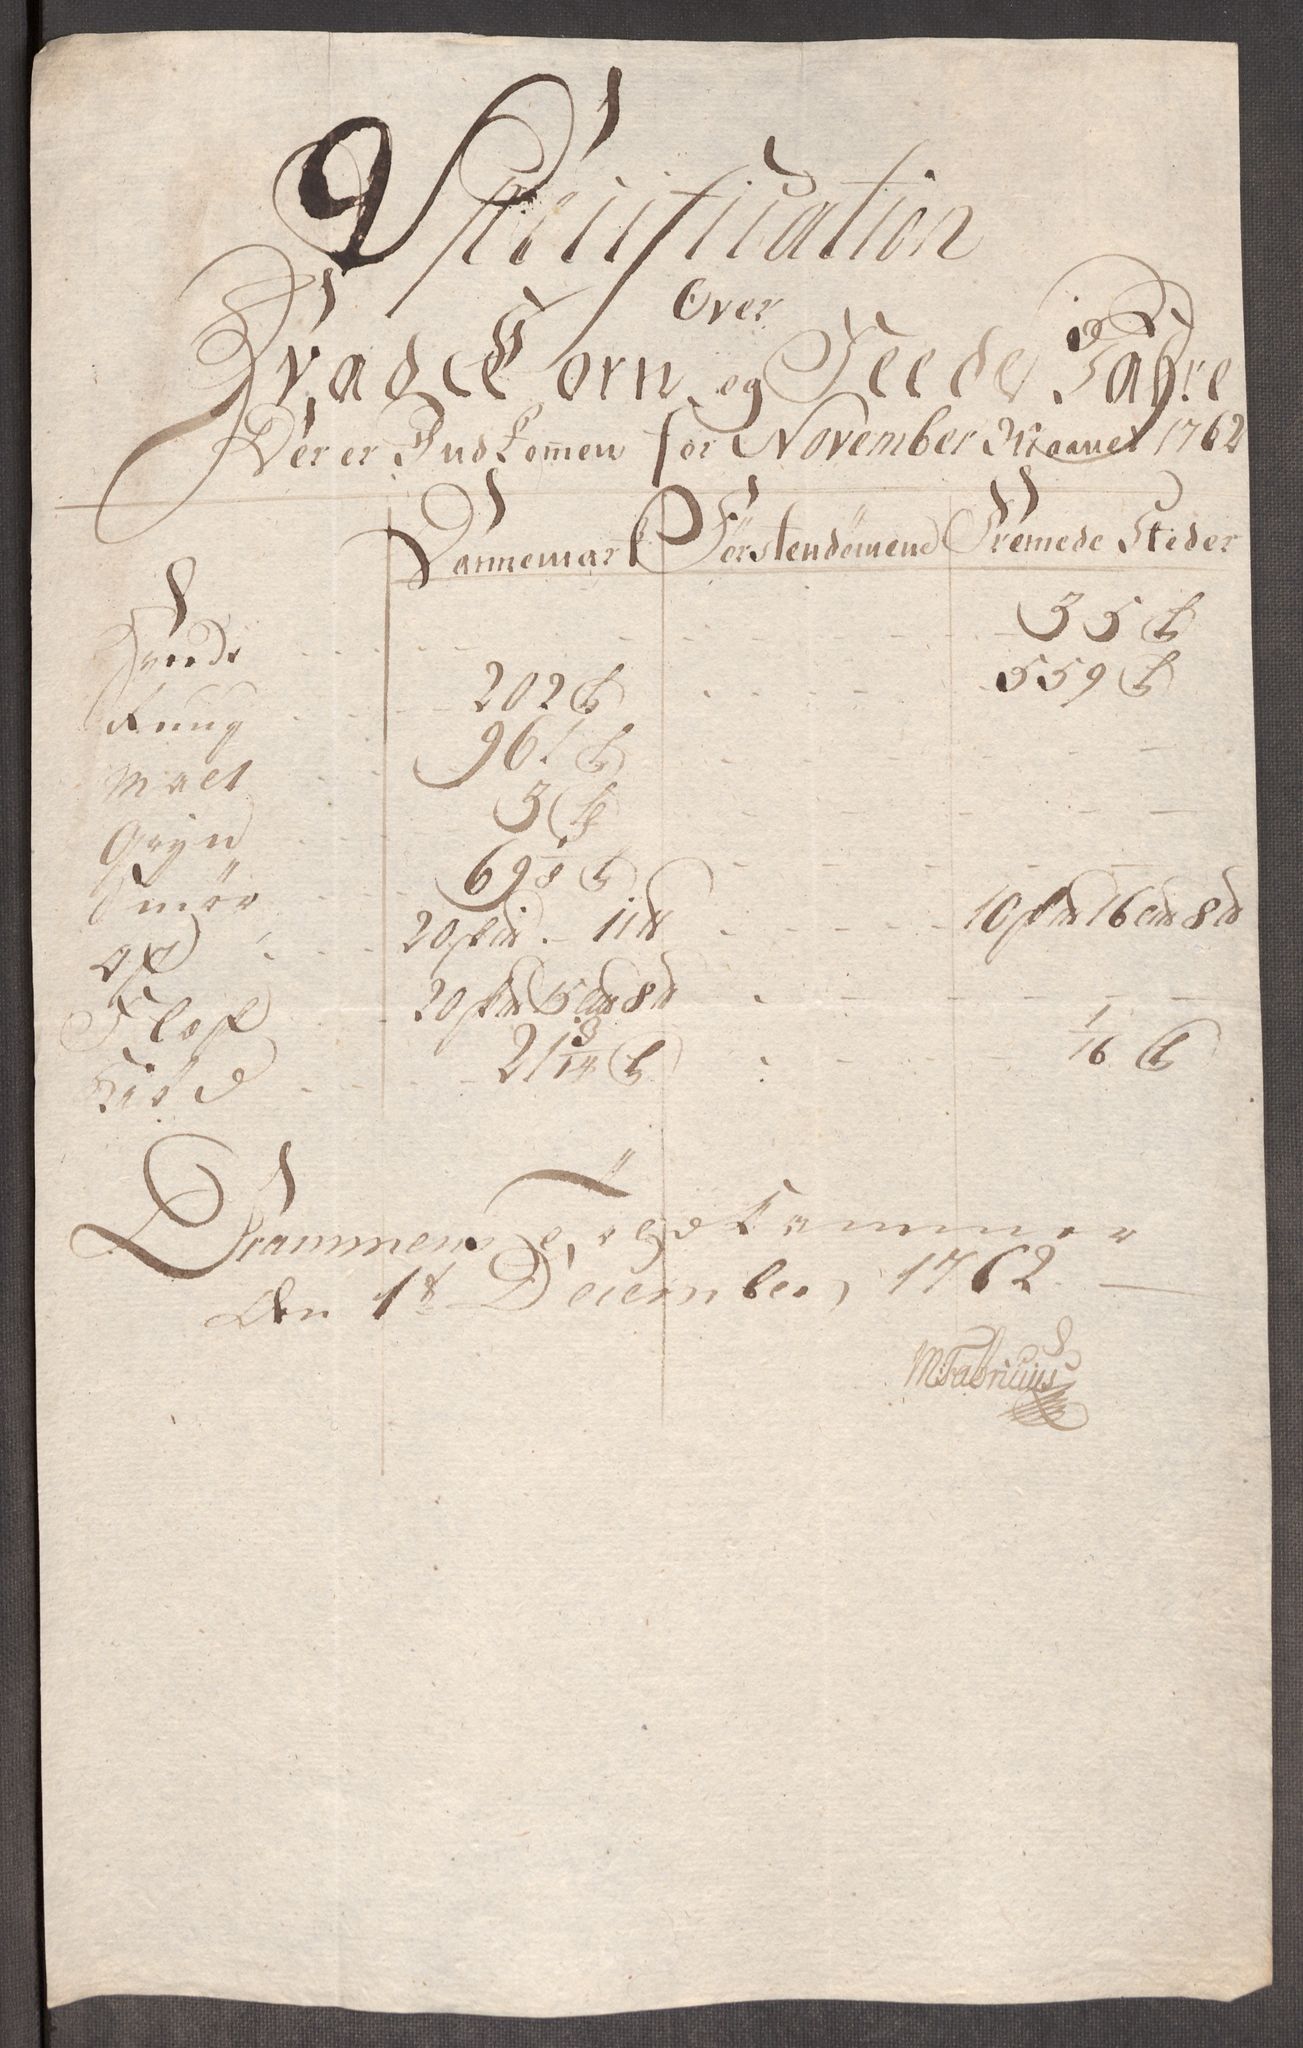 Specification
Over
Hvad Korn og Feede Vahre
Der er Indkomen for November Maanet 1762
Dannemark Förstendömene Fremede Steder
Hvede 35 t
Rug 202 t 559 t
Malt 961 t
Gryn 3 t
Smör 69 1/8 t
Ost 20 sk℔ 11 ℔ 10 sk℔ 16 ℔
Flesk 20 sk℔ 15 ℔
Kiöd 21 t 1/16 t
Drammens Told Kammer
den 1t December 1762
MFabricius